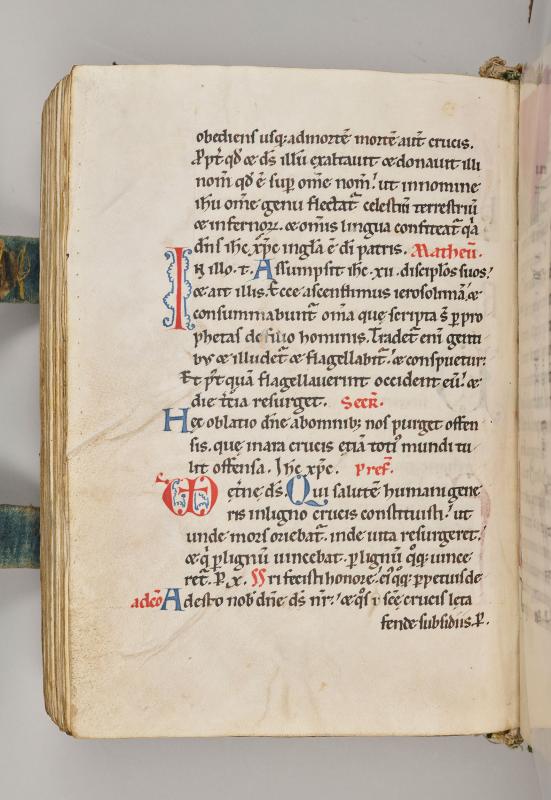 obediens usq; ad mortē mortē aut̄ crucis.
Ꝓpt̄ qd̄ & d̄s illū exaltauit & donauit illi
nom̄ qd̄ ē sup̄ om̄e nom̄. ut in nomine
ih̄u om̄e genu flectat̄ celestiū terrestriū
& infernoꝝ. & om̄is lingua confiteat̄ q̄a
dn̄s ih̄c xp̄c in gl̄a ē di patris. Matheū.
IN illo. t. Assumpsit ih̄c .xii. discip̄los suos.
& ait illis. Ecce ascendimus ierosolimā. &
consummabunt̄ om̄a que scripta s̄ ꝑ pro
phetas de filio hominis. Tradet̄ eni genti
bus & illudet̄ & flagellabit̄. & conspuetur.
Et pt̄ quā flagellauerint occident eū. &
die tc̄ia resurget. Secr̄.
Hec oblatio dn̄e ab omnib; nos purget offen
sis. que in ara crucis etiā toti᷒ mundi tu
lit offensa. Ih̄c xp̄c. Pref̄.
Et̄ne d̄s. Qui salutē humani gene
ris in ligno crucis constituisti. ut
unde mors oriebat̄. inde uita resurgeret.
& q̄ ꝑ lignū uincebat. ꝑ lignū q̊q; uince
ret. P. x. SSri fecisti honore. ei᷒ q̊q; ꝑpetuis de
ad cō Adesto nob̄ dn̄e d̄s nr̄. & q̊s ī sc̄e crucis leta
fende subsidiis. P.